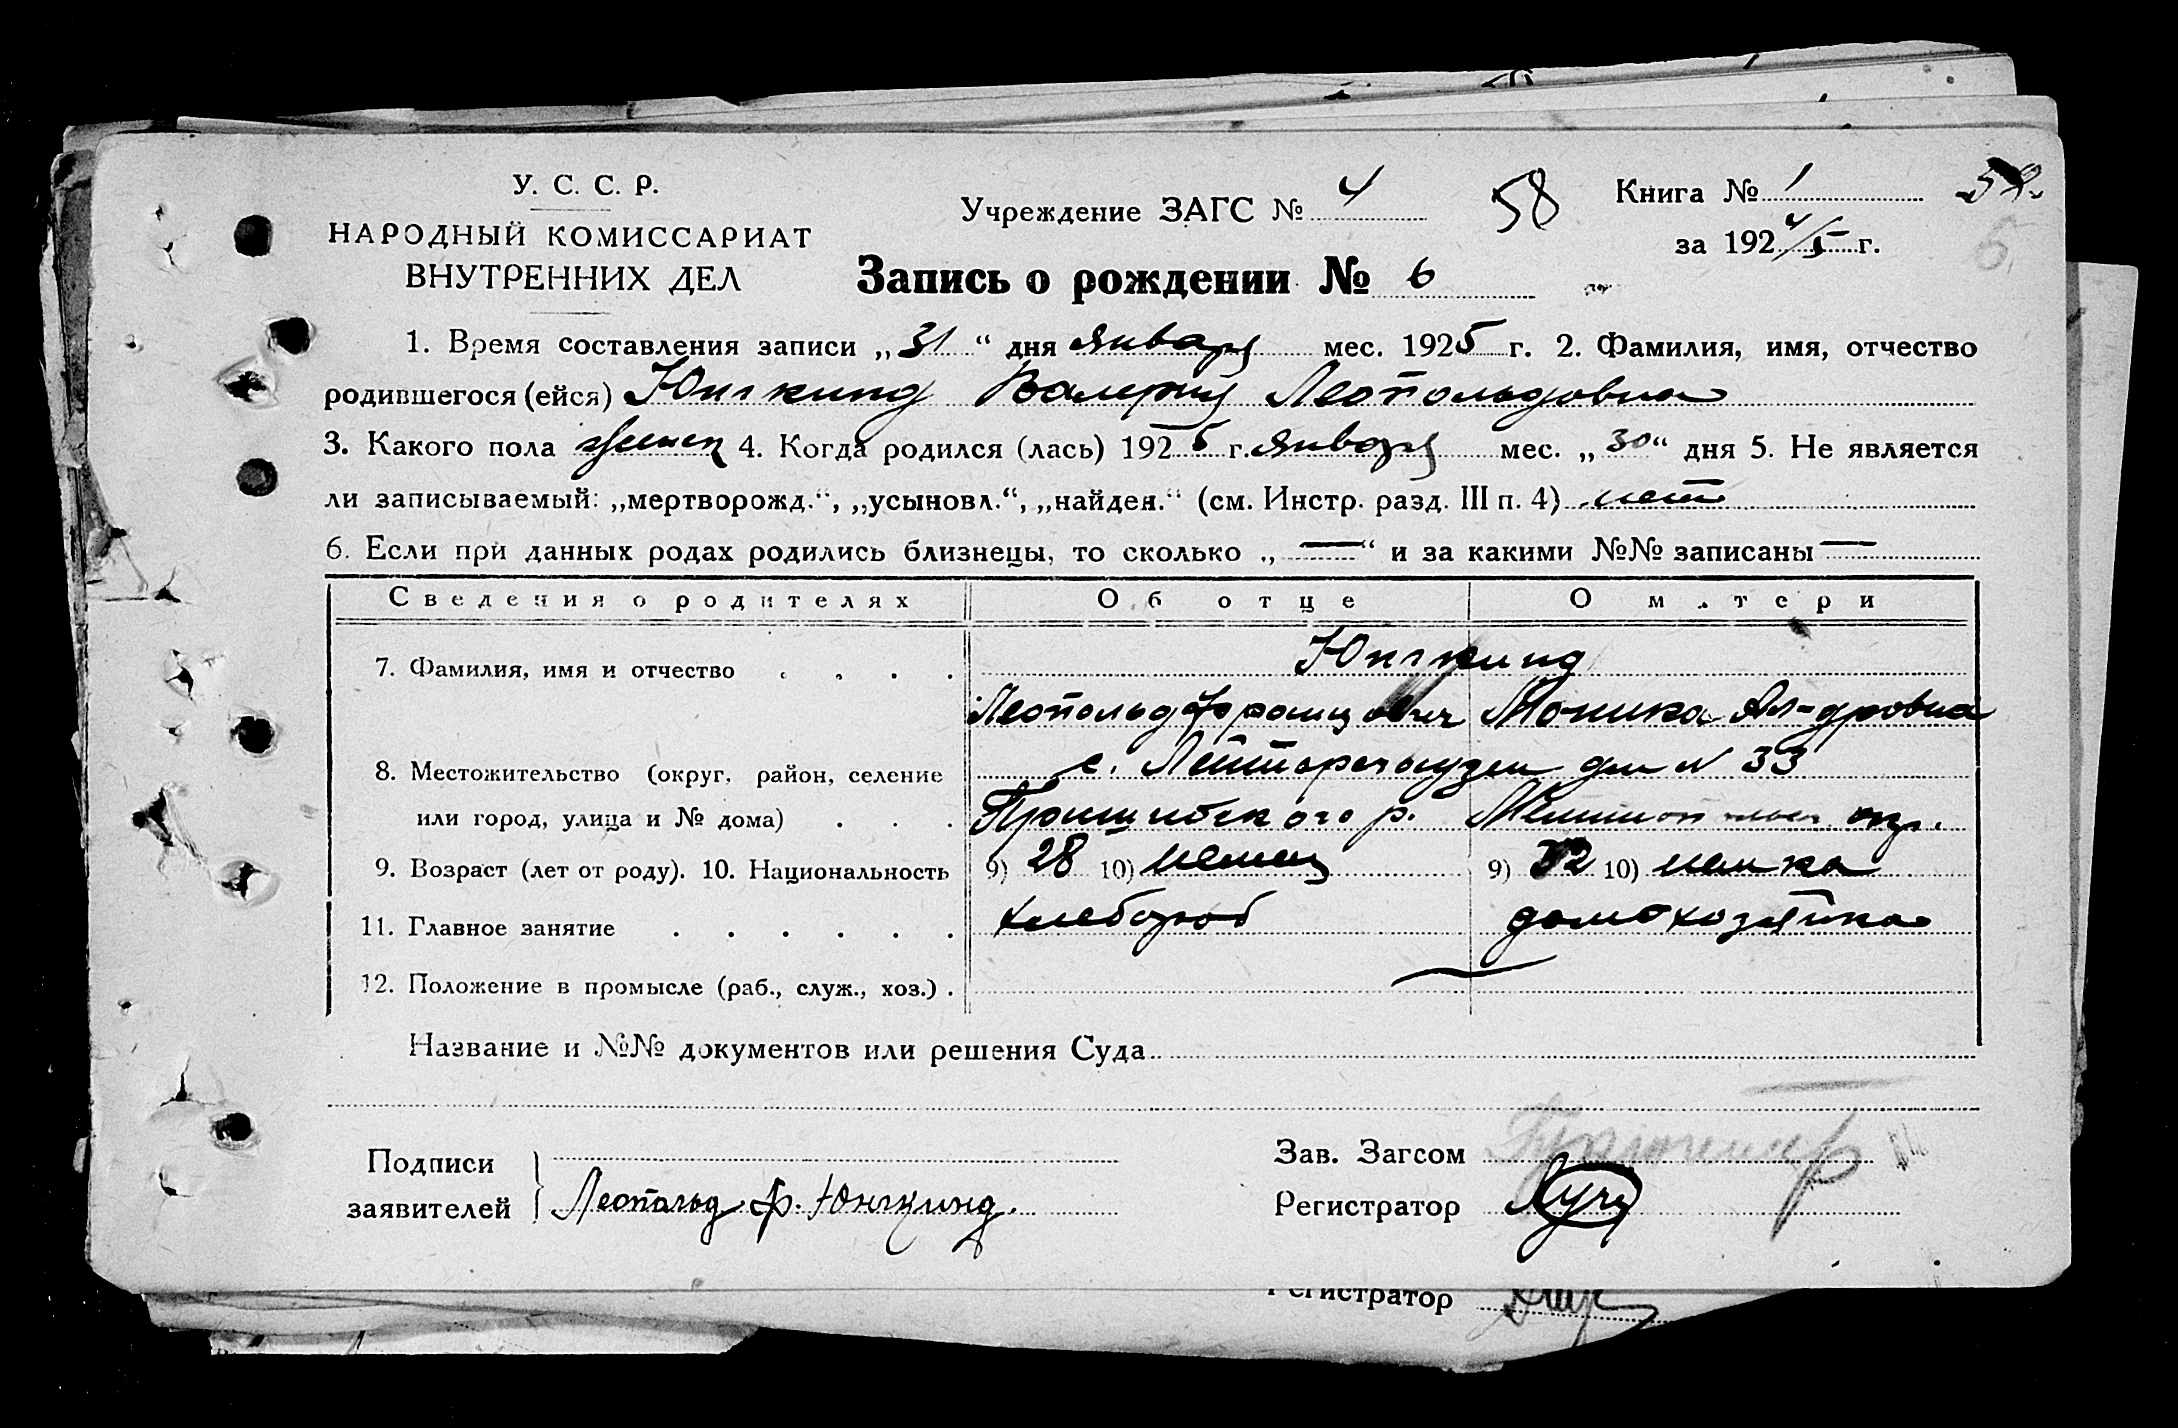 У. С. С. Р.
НАРОДНЫЙ КОМИССАРИАТ
ВНУТРЕННИХ ДЕЛ
Учреждение ЗАГС № 4
58
Книга № 1
за 192 4/5 г.
Запись о рождении № 6
1. Время составления записи „31“ дня января мес. 1925 г. 2. Фамилия, имя, отчество
родившегося (ейся) Юнгкинд Валерия Леопольдовна
3. Какого пола женск 4. Когда родился (лась) 1925 г. января мес. „30“ дня 5. Не является
ли записываемый: „мертворожд.“, „усыновл.“, „найден.“ (см. Инстр. разд. III п. 4) нет
6. Если при данных родах родились близнецы, то сколько „—“ и за какими №№ записаны —
Сведения о родителях Об отце О матери
Юнгкинд
7. Фамилия, имя и отчество
Леопольд Францович Моника Ал-дровна
с. дом № 33
8. Местожительство (округ, район, селение
или город, улица и № дома) Пришибского р. окр.
9. Возраст (лет от роду). 10. Национальность 9) 28 10) немец 9) 32 10) немка
11. Главное занятие хлебороб домохозяйка
12. Положение в промысле (раб., служ., хоз.) —
Название и №№ документов или решения Суда
Подписи
заявителей Леопольд Ф. Юнгкинд.
Зав. Загсом
Регистратор
Регистратор